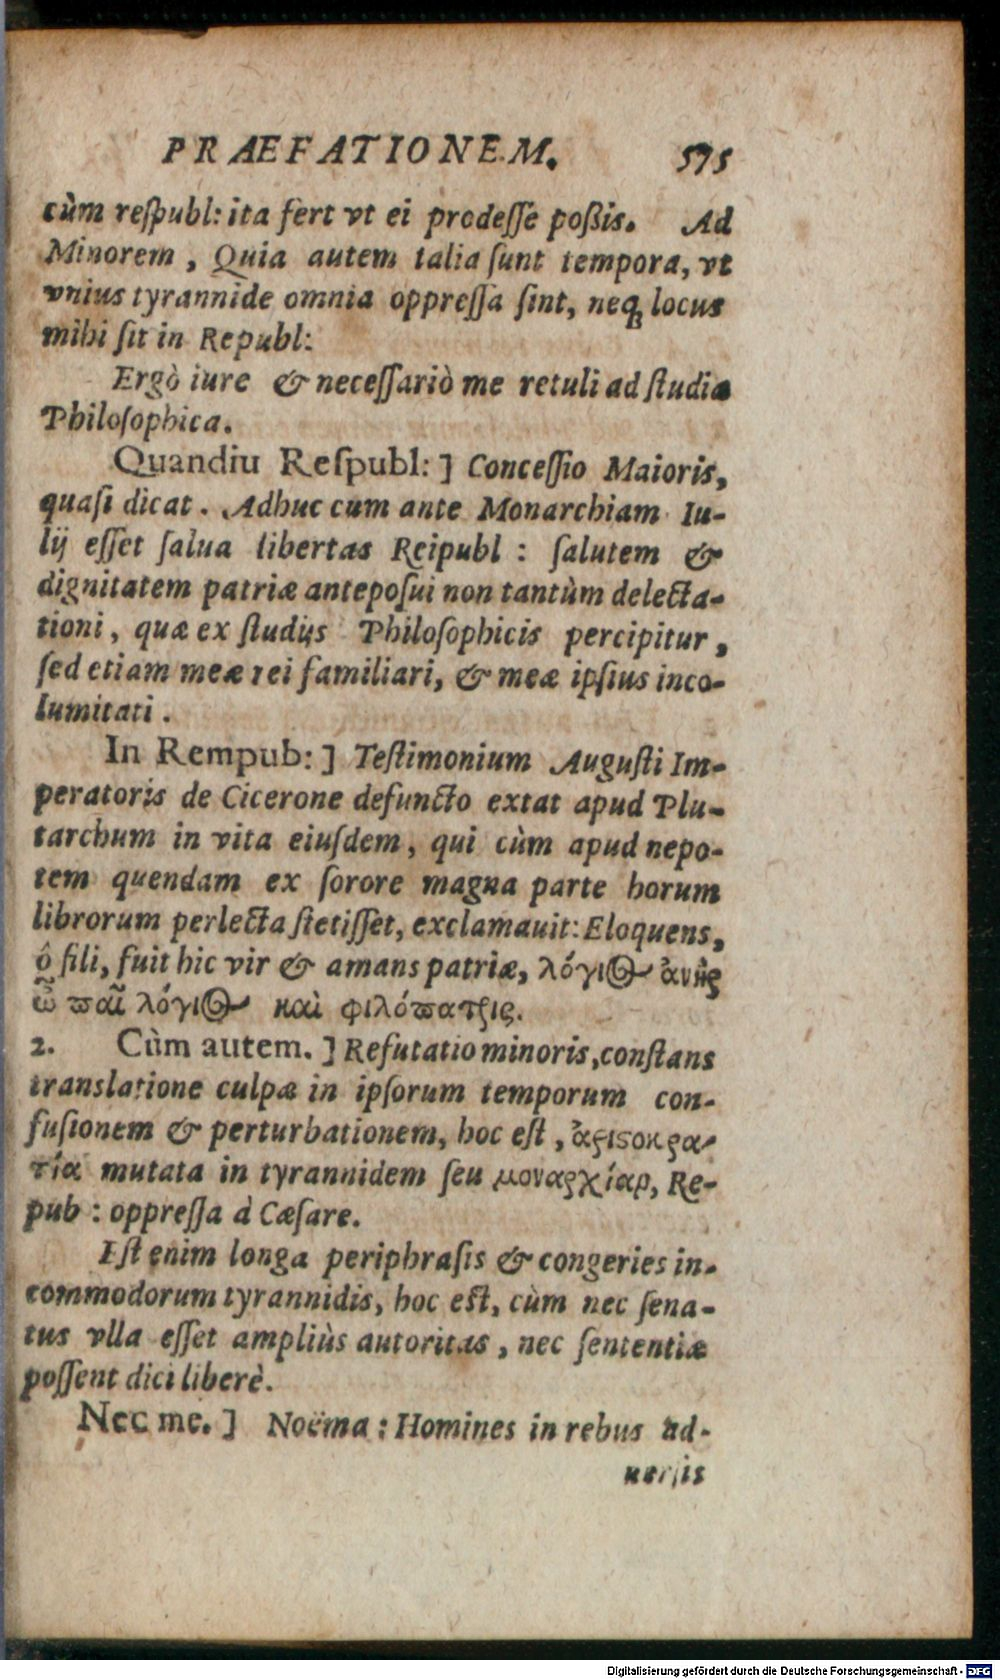 PRÆFATIONEM. 575
cùm reſpubl: ita fert vt ei prodeſſe poßis. Ad
Minorem, Quia autem talia ſunt tempora, vt
vnius tyrannide omnia oppreſſa ſint, neqꝫ locus
mihi ſit in Republ:
Ergò iure & neceſſariò me retuli ad ſtudia
Philoſophica.
Quandiu Reſpubl: ] Conceſſio Maioris,
quaſi dicat. Adhuc cum ante Monarchiam Iu-
lij eſſet ſalua libertas Reipubl: ſalutem &
dignitatem patriæ antepoſui non tantùm delecta-
tioni, quæ ex ſtudijs Philoſophicis percipitur,
ſed etiam meæ rei familiari, & meæ ipſius inco-
lumitati.
In Rempub: ] Teſtimonium Auguſti Im-
peratoris de Cicerone defuncto extat apud Plu-
tarchum in vita eiuſdem, qui cùm apud nepo-
tem quendam ex ſorore magna parte horum
librorum perlecta ſtetiſſet, exclamauit: Eloquens,
ô fili, fuit hic vir & amans patriæ, λόγιος ἀνὴρ
ὦ παῖ λόγιος καὶ φιλόπατρις.
2. Cùm autem. ] Refutatio minoris, conſtans
translatione culpæ in ipſorum temporum con-
fuſionem & perturbationem, hoc eſt, ἀριϛοκρα-
τία mutata in tyrannidem ſeu μοναρχίαρ, Re-
pub: oppreſſa à Cæſare.
Eſt enim longa periphraſis & congeries in-
commodorum tyrannidis, hoc eſt, cùm nec ſena-
tus vlla eſſet ampliùs autoritas, nec ſententiæ
poſſent dici liberè.
Nec me. ] Noëma: Homines in rebus ad-
uerſis
Digitalisierung gefördert durch die Deutsche Forschungsgemeinschaft - DFG